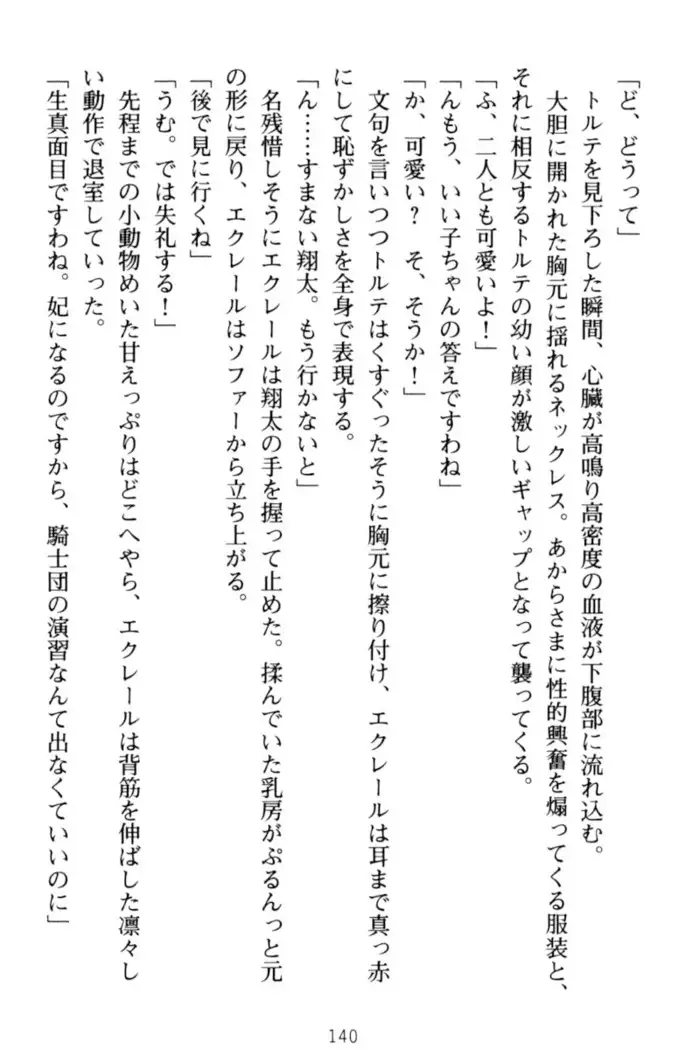 「ど、どうって」
トルテを見下ろした瞬間、心臓が高鳴り高密度の血液が下腹部に流れ込む。
大胆に開かれた胸元に揺れるネックレス。あからさまに性的興奮を煽ってくる服装と、
それに相反するトルテの幼い顔が激しいギャップとなって襲ってくる。
「ふ、二人とも可愛いよ！」
「んもう、いい子ちゃんの答えですわね」
「か、可愛い？　そ、そうか！」
文句を言いつつトルテはくすぐったそうに胸元に擦り付け、エクレールは耳まで真っ赤
にして恥ずかしさを全身で表現する。
「ん……すまない翔太。もう行かないと」
名残惜しそうにエクレールは翔太の手を握って止めた。揉んでいた乳房がぷるんっと元
の形に戻り、エクレールはソファーから立ち上がる。
「後で見に行くね」
「うむ。では失礼する！」
先程までの小動物めいた甘えっぷりはどこへやら、エクレールは背筋を伸ばした凛々し
い動作で退室していった。
「生真面目ですわね。妃になるのですから、騎士団の演習なんて出なくていいのに」
140